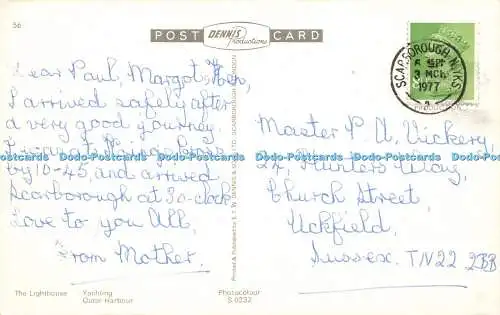 56
POST CARD
DENNIS
Productions
Dear Paul, Margot, Ken,
I arrived safely after
a very good journey.
I was at Kings Cross
by 10-45, and arrived
Scarborough at 3 o-clock
Love to you All,
From Mother.
The Lighthouse Yachting
Outer Harbour
Photocolour
S 0332
Printed & Published by E. T. W. DENNIS & SONS LTD. SCARBOROUGH & LONDON
SCARBOROUGH N. YKS
3 MCH
1977
Master P A Vickery,
22, Printers Way,
Church Street
Uckfield,
Sussex. TN22 2BB
Dodo-Postcards Dodo-Postcards Dodo-Postcards Dodo-Postcards